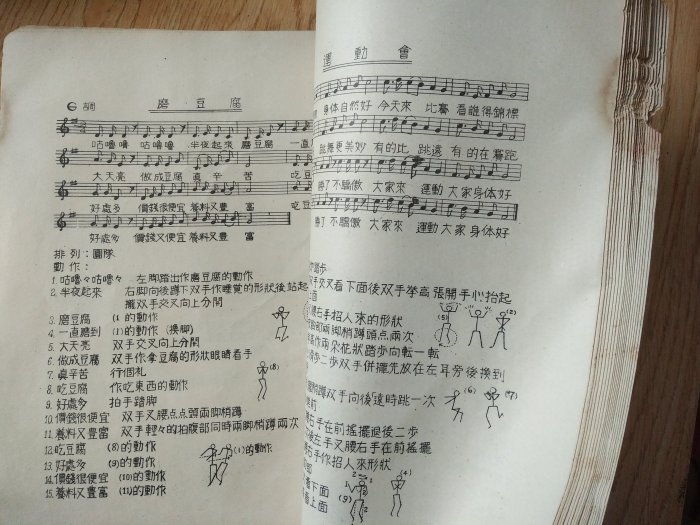 G 調 磨豆腐
咕嚕嚕 咕嚕嚕 半夜起來 磨豆腐 一直
大天亮 做成豆腐 真辛苦 吃豆
好處多 價錢很便宜 養料又豐富 吃豆
好處多 價錢又便宜 養料又豐富
排列：圓隊
動作：
1. 咕嚕々咕嚕々 左脚踏出作磨豆腐的動作
2. 半夜起來 右脚向後蹲下双手作睡覺的形狀後站起
攏双手交叉向上分開
3. 磨豆腐 (1的動作)
4. 一直磨到 (1)的動作(換脚)
5. 大天亮 双手交叉向上分開
6. 做成豆腐 双手作拿豆腐的形狀眼睛看手
7. 真辛苦 行個礼
8. 吃豆腐 作吃東西的動作
9. 好處多 拍手踏脚
10. 價錢很便宜 双手叉腰点点頭兩脚梢蹲
11. 養料又豐富 双手輕々的拍腹部同時兩脚梢蹲兩次
12. 吃豆腐 (8)的動作
13. 好處多 (9)的動作
14. 價錢很便宜 (10)的動作
15. 養料又豐富 (11)的動作
(8)
(1)的動作
運動會
身体自然好 今天來 比賽 看誰得錦標
跳舞更美妙 有的比 跳遠 有的在賽跑
勝了不驕傲 大家來 運動大家身体好
勝了不驕傲 大家來 運動大家身体好
踏步
双手交叉看下面後双手举高張開手心抬起
上面
腰右手招人來的形狀
部兩脚梢蹲頭点兩次
作兩朵花狀踏步向転一転
步二步双手併攏先放在左耳旁後換到
梢蹲双手向後遠時跳一次
前
右手在前搖擺退後二步
後左手叉腰右手在前搖擺
右手作招人來形狀
部
看下面
看上面
(5)
(2)
(6)
(7)
(9)
(4)